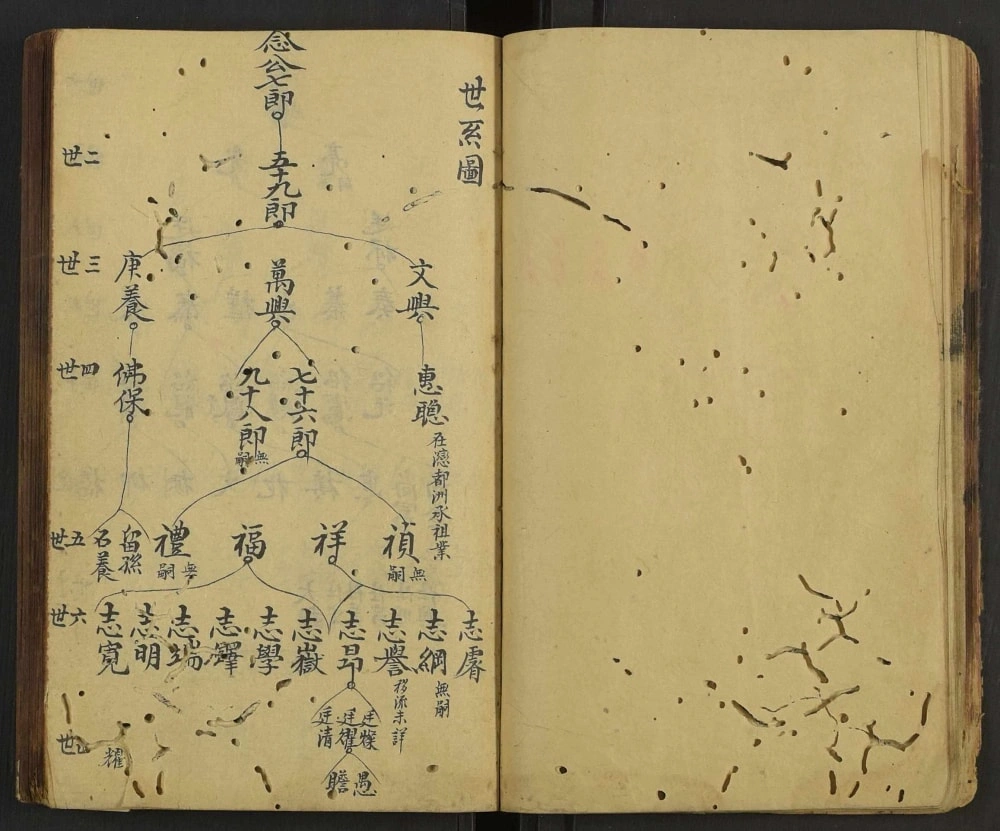 世系圖
念公七郎
二世
五十九郎
三世
文興
萬興
庚養
四世
惠聰
在德都洲承祖業
七十六郎
九十八郎
無嗣
佛保
五世
禎
無嗣
祥
福
禮
無嗣
留孫
名養
六世
志睿
志綱
無嗣
志譽
移流未詳
志昂
志嶽
志學
志鐸
志端
志明
志寬
七世
廷燦
廷耀
廷清
愚
瞻
耀